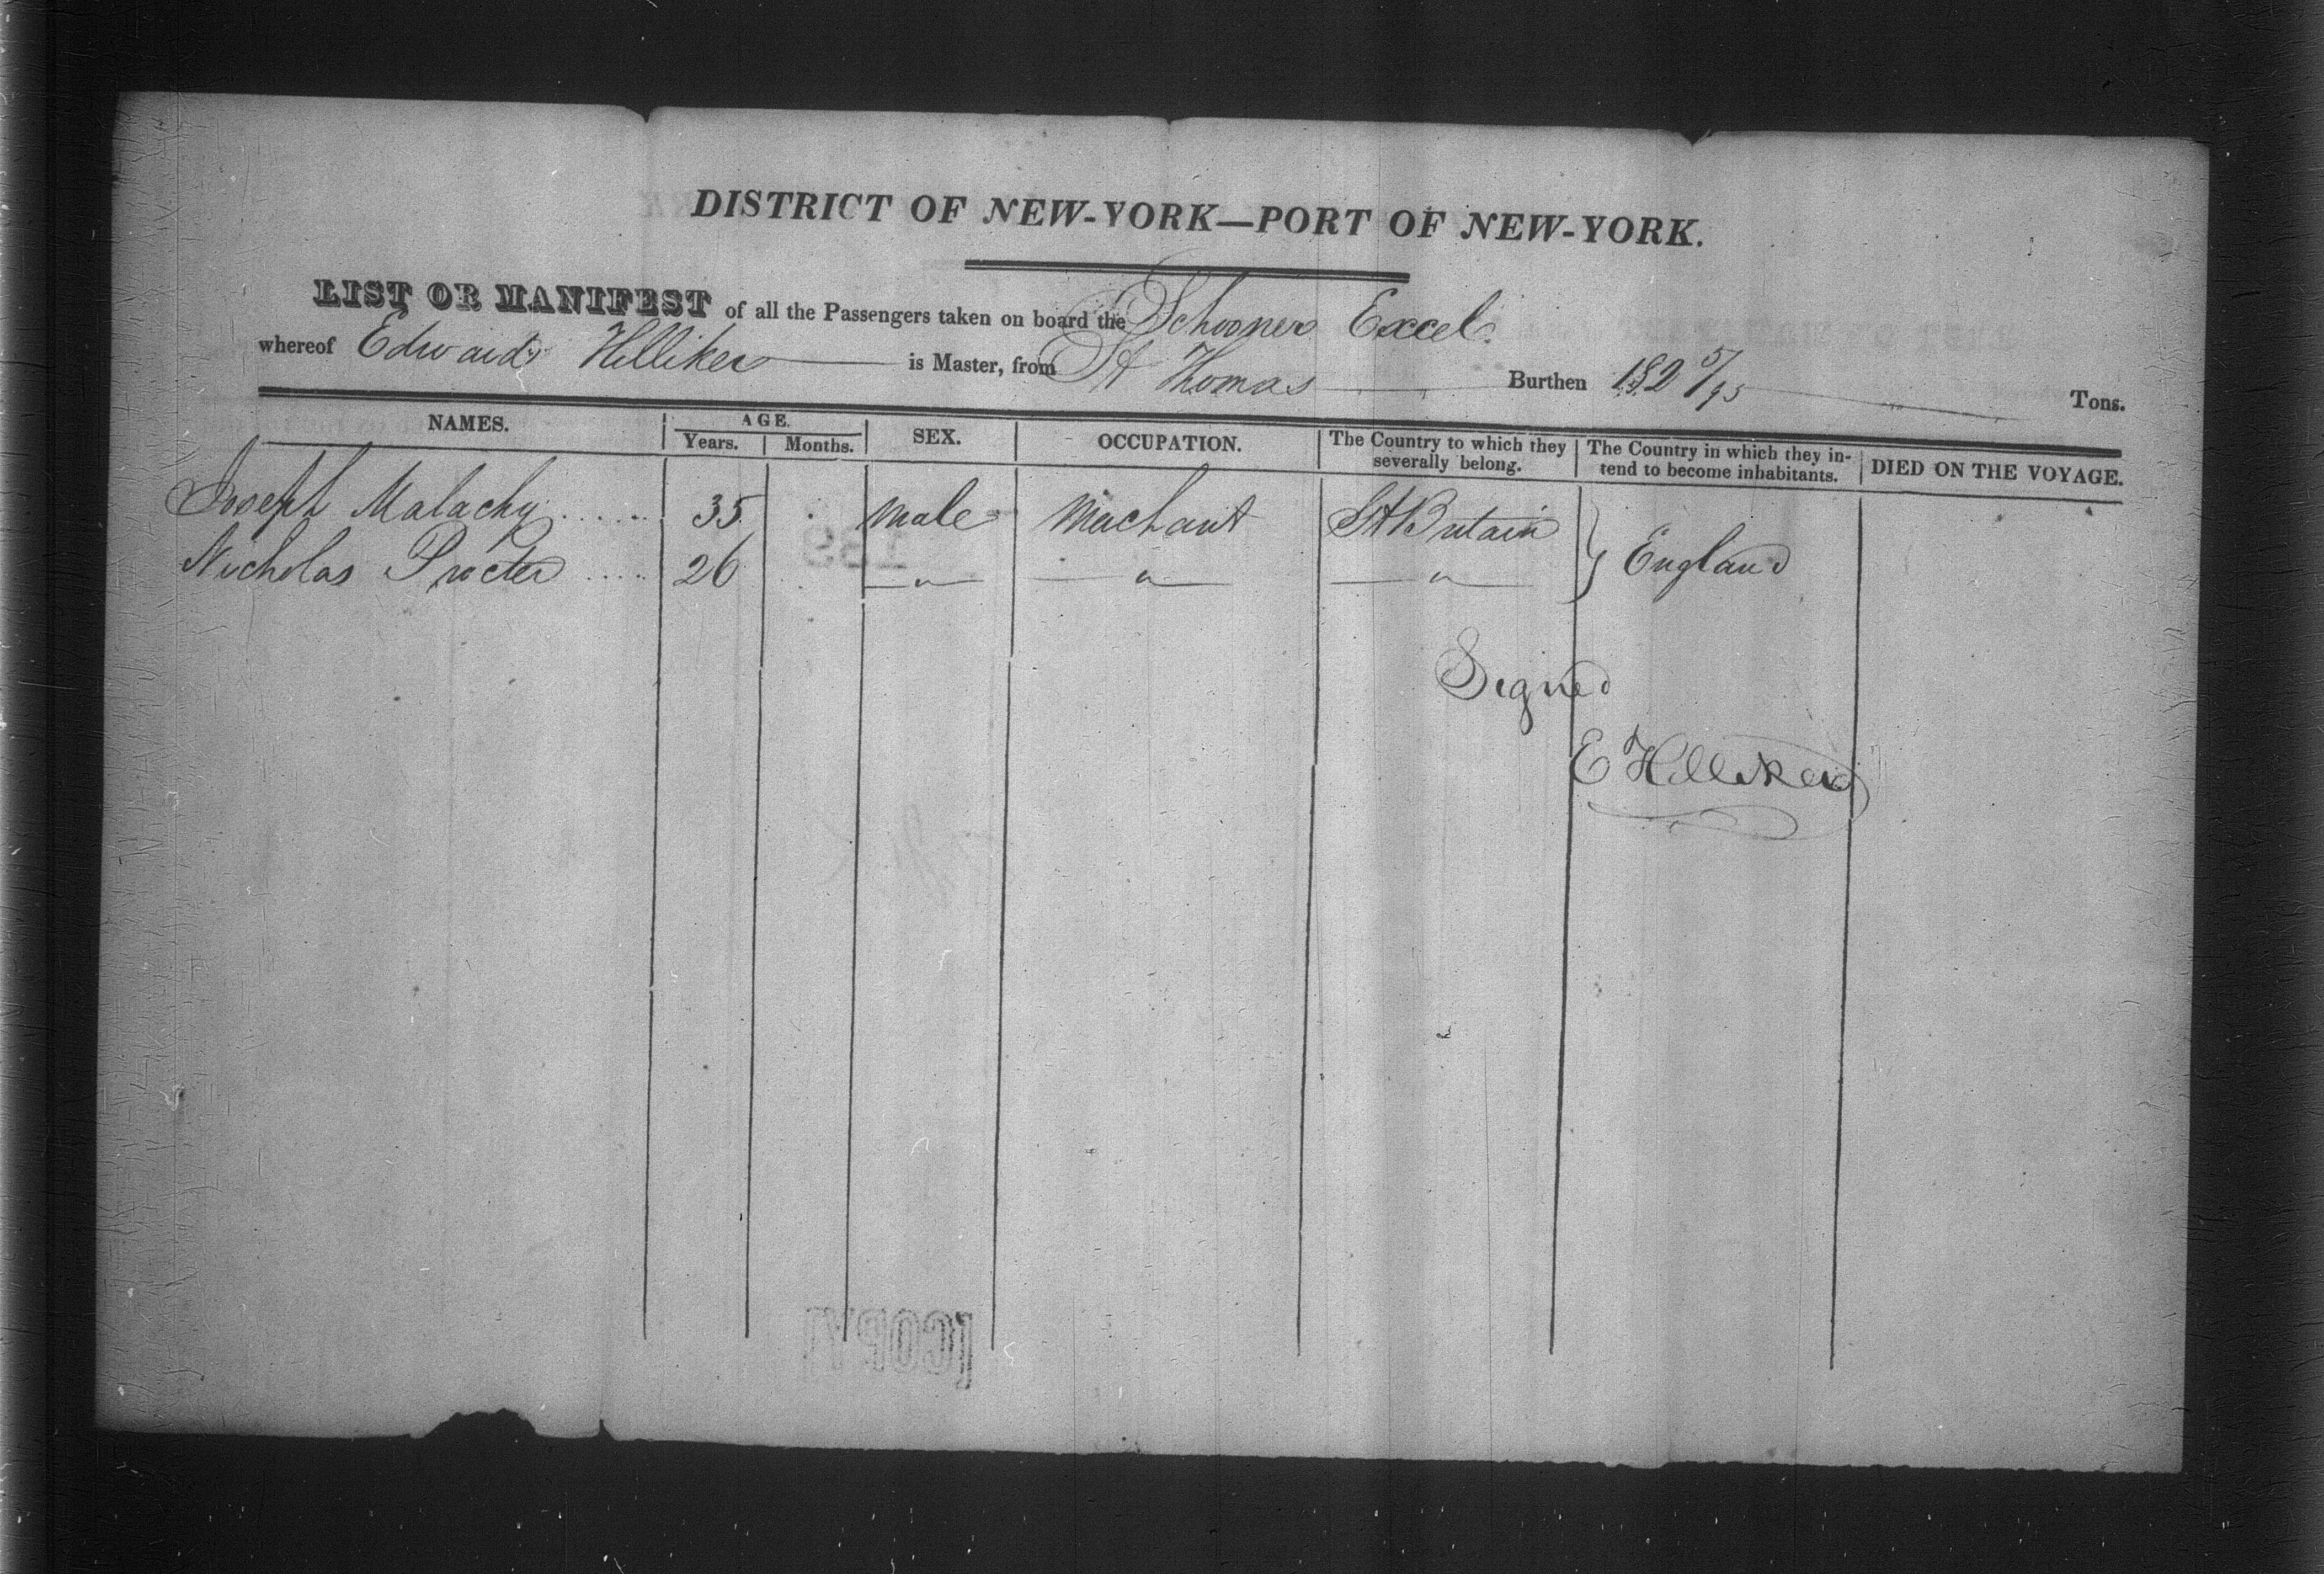 DISTRICT OF NEW-YORK—PORT OF NEW-YORK.
LIST OR MANIFEST of all the Passengers taken on board the Schooner Excel.
whereof Edward Hilliker is Master, from St Thomas Burthen 182 5/95 Tons.
NAMES. AGE. Years. Months. SEX. OCCUPATION. The Country to which they severally belong. The Country in which they intend to become inhabitants. DIED ON THE VOYAGE.
Joseph Malachy ...... 35 male Merchant Gt Britain } England
Nicholas Procter ..... 26 " " "
Signed
E Hilliker
[COPY]